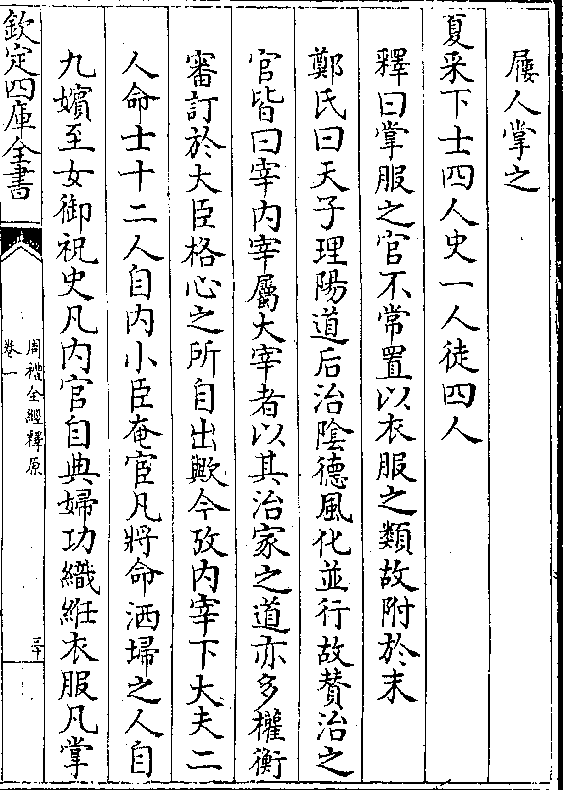 屨人掌之
夏采下士四人史一人徒四人
釋曰掌服之官不常置以衣服之類故附於末
鄭氏曰天子理陽道后治隂德風化並行故賛治之
官皆曰宰内宰屬大宰者以其治家之道亦多權衡
審訂於大臣格心之所自出歟今攷内宰下大夫二
人命士十二人自内小臣奄宦凡將命洒埽之人自
九嬪至女御祝史凡内官自典婦功織絍衣服凡掌
欽定四庫全書
周禮全經釋原
卷一
三十